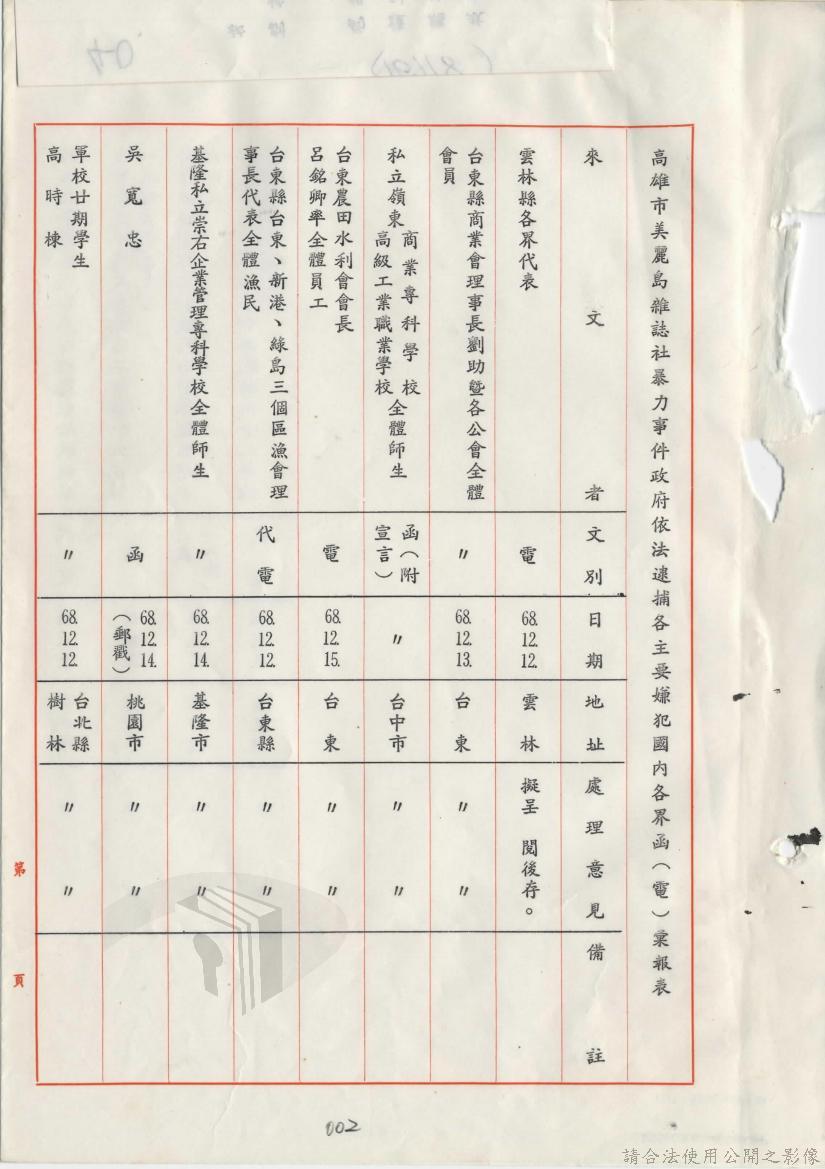 高雄市美麗島雜誌社暴力事件政府依法逮捕各主要嫌犯國內各界函(電)彙報表
來文者
文別
日期
地址
處理意見
備註
雲林縣各界代表
電
68.12.12.
雲林
擬呈 閱後存。
台東縣商業會理事長劉助暨各公會全體
會員
〃
68.12.13.
台東
〃 〃
私立嶺東商業專科學校
高級工業職業學校全體師生
函(附
宣言)
〃
台中市
〃 〃
台東農田水利會會長
呂銘卿率全體員工
電
68.12.15.
台東
〃 〃
台東縣台東、新港、綠島三個區漁會理
事長代表全體漁民
代電
68.12.12.
台東縣
〃 〃
基隆私立崇右企業管理專科學校全體師生
〃
68.12.14.
基隆市
〃 〃
吳寬忠
函
68.12.14.
(郵戳)
桃園市
〃 〃
軍校廿期學生
高時棟
〃
68.12.12.
台北縣
樹林
〃 〃
第 頁
002
請合法使用公開之影像